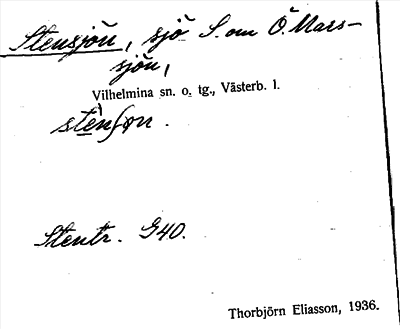 Stensjön, sjö S. om Ö. Mars-
sjön,
Vilhelmina sn. o. tg., Västerb. l.
Stentr. G40.
Thorbjörn Eliasson, 1936.